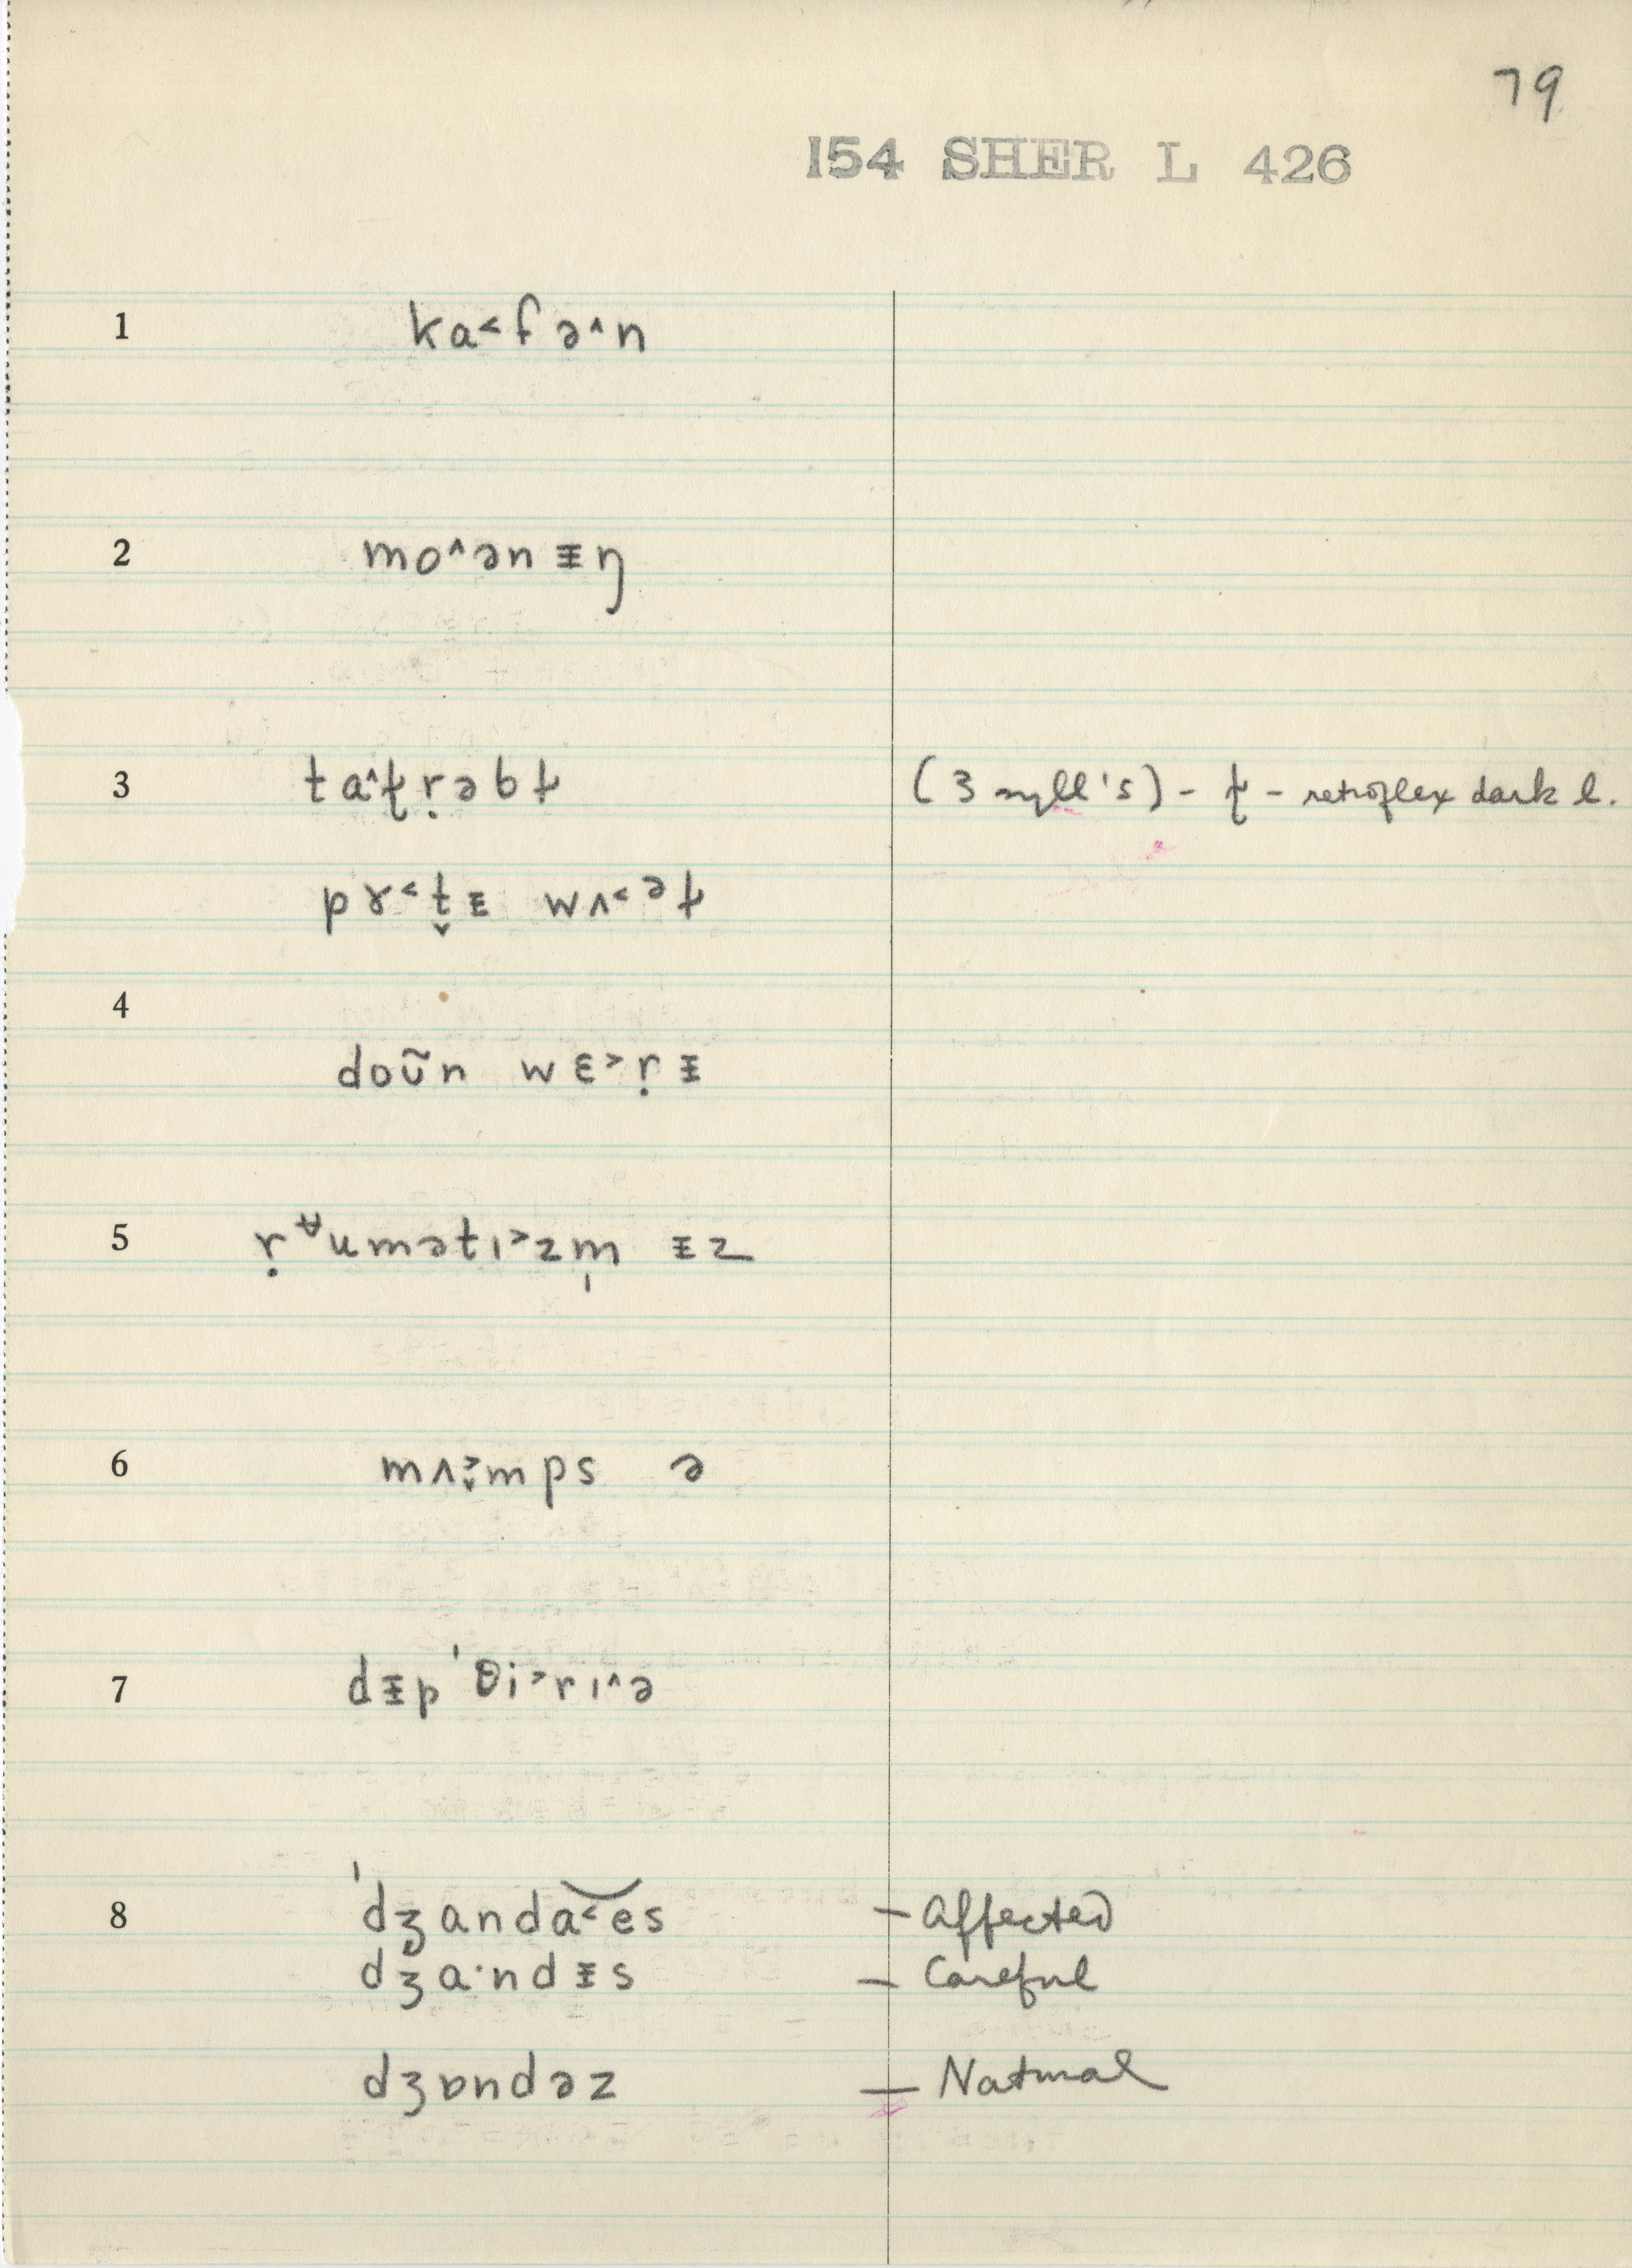 79
154 SHER L 426
1 ka˂fə˄n
2 mo˄ənᵻŋ
3 ta˄ɫ̢ṛəbɫ (3 syll's) - ɫ̢ - retroflex dark l.
pɤ˂t̬ᵻ wʌ˂ᵊɫ
4
doʊ̃n wɛ˃ṛᵻ
5 ṛᵿumətɪ˃zm̩ ᵻz
6 mʌ˃̬mps ə
7 dᵻp'θi˃rɪ˄ə
8 'dʒanda˂͡es - Affected
dʒa·ndᵻs - Careful
dʒɒndəz - Natural